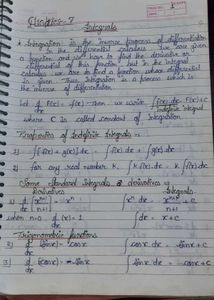 Chapter-7
Integrals
* Integration is the inverse process of differentiation
In the differential calculus we are given
a function and we have to find the derivative or
differential of this function but in the integral
calculus we are to find a function whose differential
is given. Thus integration is a process which is
the inverse of differentiation.
Let d/dx F(x) = f(x). Then we write ∫f(x) dx = F(x) + C
indefinite integral
where C is called constant of integration.
Properties of Indefinite Integrals :-
1) ∫[f(x) + g(x)] dx = ∫f(x) dx + ∫g(x) dx
2) for any real number k, ∫k f(x) dx = k ∫f(x) dx
Some standard integrals & derivatives
Derivatives Integrals
1) d/dx (xⁿ⁺¹/n+1) = xⁿ ; ∫xⁿ dx = xⁿ⁺¹/n+1 + C
when n=0 d/dx (x) = 1 ∫dx = x + C
Trigonometric functions
2) d/dx (sinx) = cosx ∫cosx dx = sinx + C
3) d/dx (-cosx) = sinx ∫sinx dx = -cosx + C